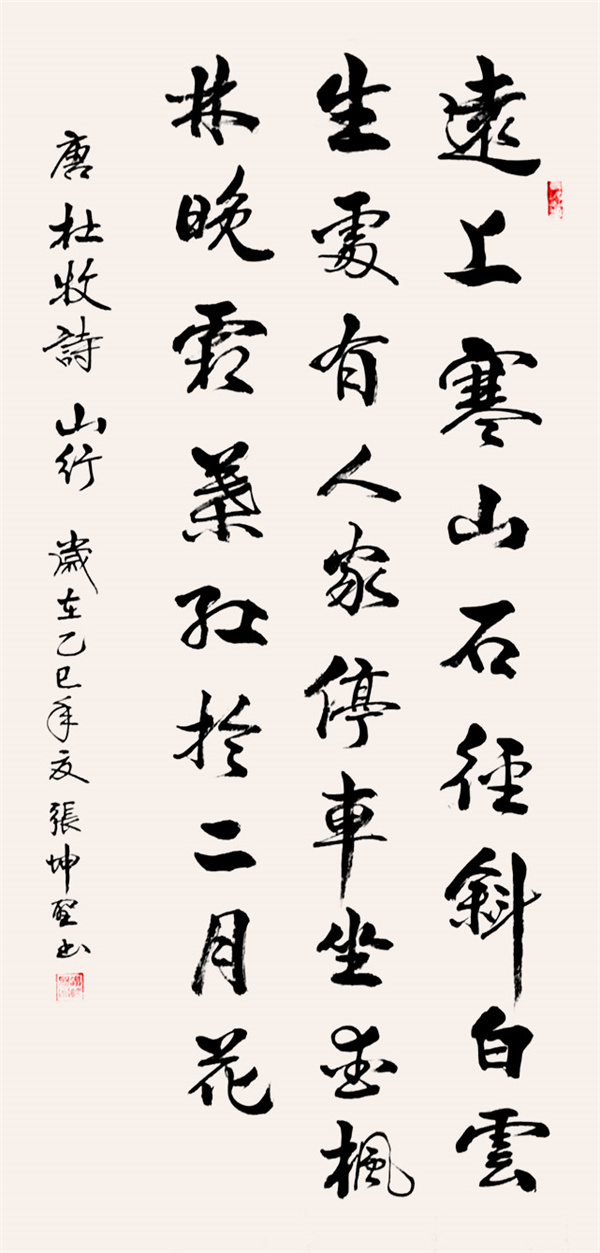 遠上寒山石徑斜白雲
生處有人家停車坐愛楓
林晚霜葉紅於二月花
唐杜牧詩山行歲在乙巳年夏張坤聖书